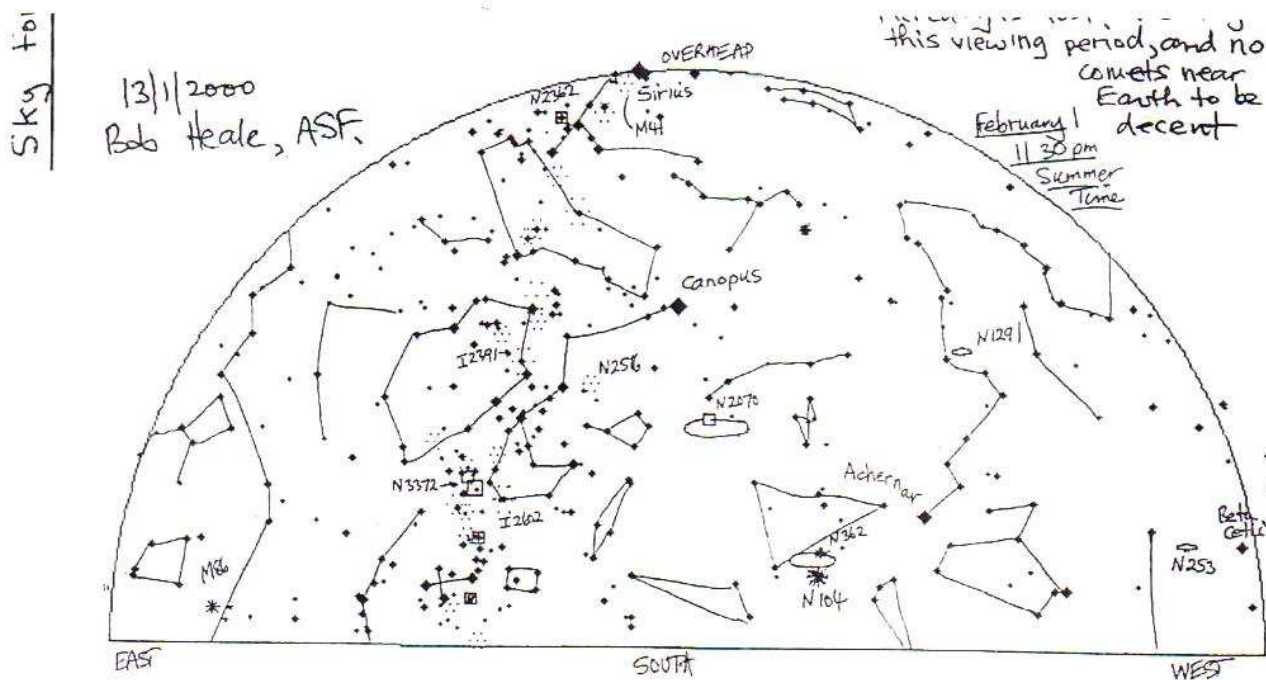 Sky for
13/1/2000
Bob Heale, ASF.
this viewing period, and no
comets near
Earth to be
decent
February 1
11 30 pm
Summer
Time
OVERHEAD
N2362
Sirius
M41
Canopus
I2391
N2516
N1291
N2070
N3372
I2602
Achernar
N362
N104
M86
Beta
Ceti
N253
EAST
SOUTH
WEST